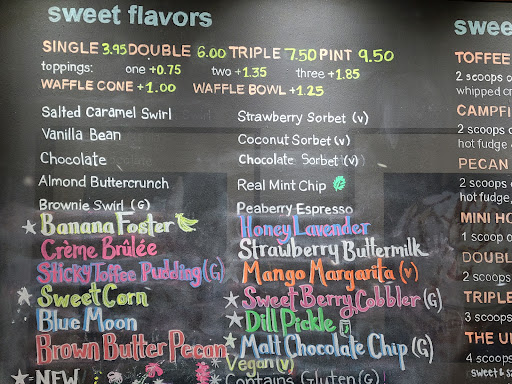 sweet flavors
SINGLE 3.95 DOUBLE 6.00 TRIPLE 7.50 PINT 9.50
toppings: one +0.75 two +1.35 three +1.85
WAFFLE CONE +1.00 WAFFLE BOWL +1.25
Salted Caramel Swirl
Vanilla Bean
Chocolate
Almond Buttercrunch
Brownie Swirl (G)
Banana Foster
Crème Brûlée
Sticky Toffee Pudding (G)
Sweet Corn
Blue Moon
Brown Butter Pecan
NEW
Strawberry Sorbet (v)
Coconut Sorbet (v)
Chocolate Sorbet (v)
Real Mint Chip
Peaberry Espresso
Honey Lavender
Strawberry Buttermilk
Mango Margarita (v)
Sweet Berry Cobbler (G)
Dill Pickle
Malt Chocolate Chip (G)
Vegan (v)
Contains Gluten (G)
swee
TOFFEE
2 scoops o
whipped cr
CAMPFI
2 scoops o
hot fudge
PECAN
2 scoops o
hot fudge,
MINI HO
1 scoop o
DOUBL
2 scoops
TRIPLE
3 scoops
THE U
4 scoop
sweet & sa